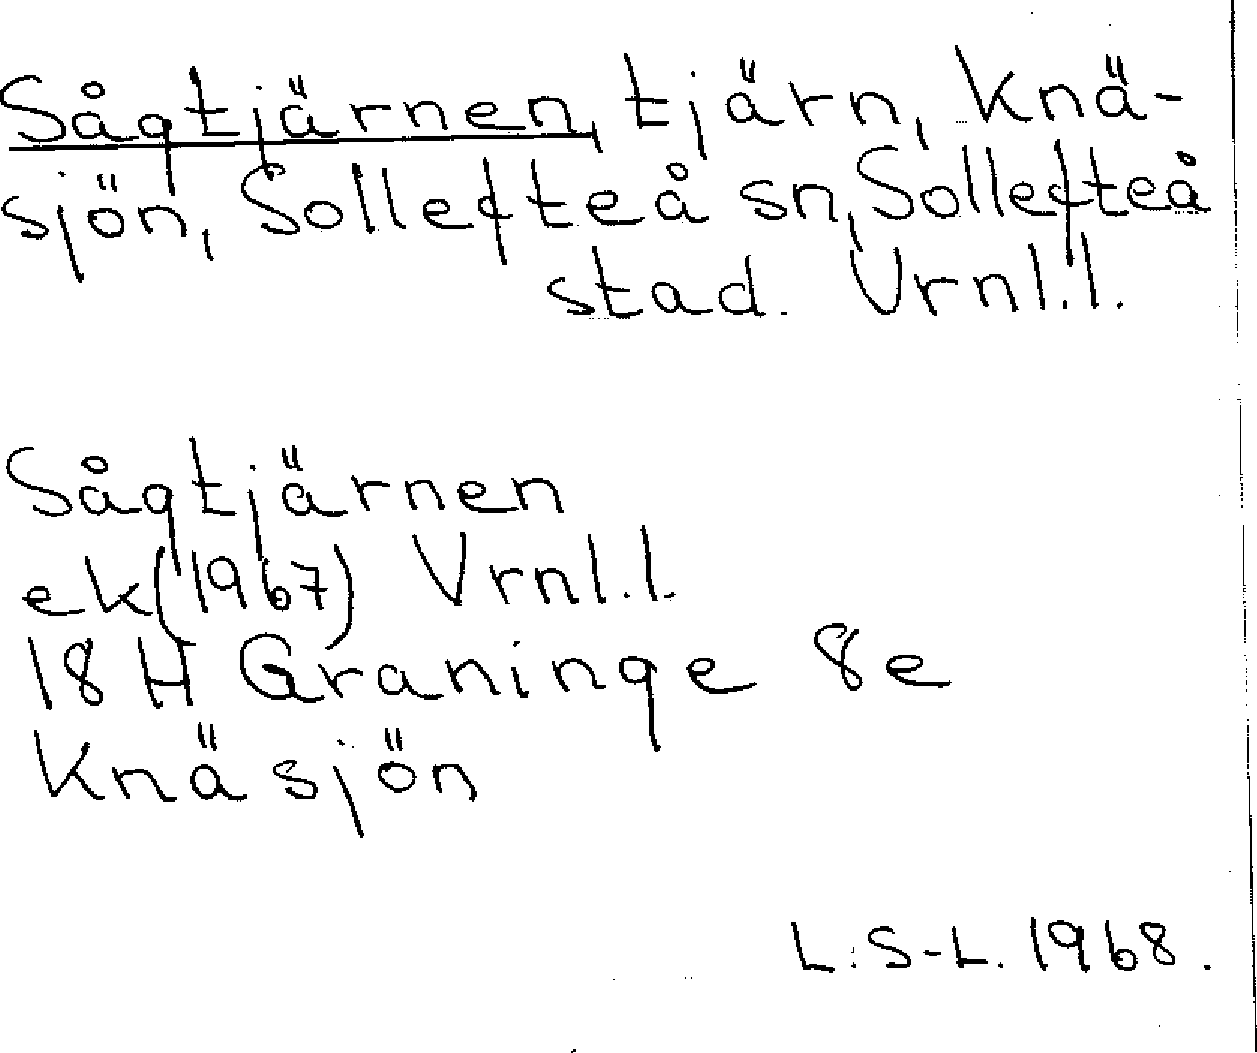 Sågtjärnen, tjärn, Knä-
sjön, Sollefteå sn, Sollefteå
stad. Vrnl.l.
Sågtjärnen
ek(1967) Vrnl.l.
18 H Graninge 8e
Knäsjön
L.S-L. 1968.